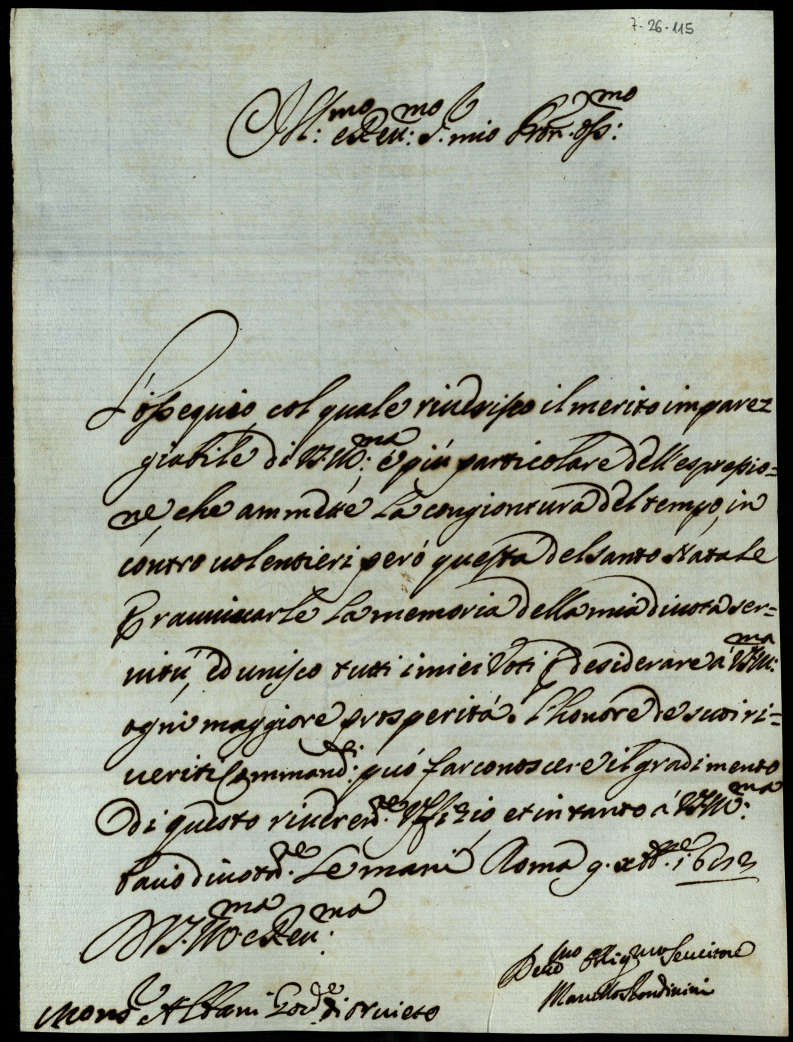 7-26-115
Ill:mo e Reu:mo S. mio Pron. oss:mo
L'ossequio, col quale riuerisco il merito imparez
giabile di V.S. Ill:ma è più particolare dell'espressio=
ne, che ammette la congiontura del tempo, in
contro uolentieri però questa del santo Natale
P rauuiuarle la memoria della mia diuota ser=
uitù, ed unisco tutti i miei Voti P desiderare a V.S. Ill:ma
ogni maggiore prosperità. L'honore de suoi ri=
ueriti Commandi: può far conoscere il gradimento
di questo riueren:te Uffizio, et in tanto à V.S. Ill:ma
bacio diuotam:te le mani Roma 9. xbre
D V.S. Ill:ma e Reu:ma
Deuo:mo Oblig:mo Seruitore
Marcello Rondinini
Mons:r Albani Gou:re di Oruieto